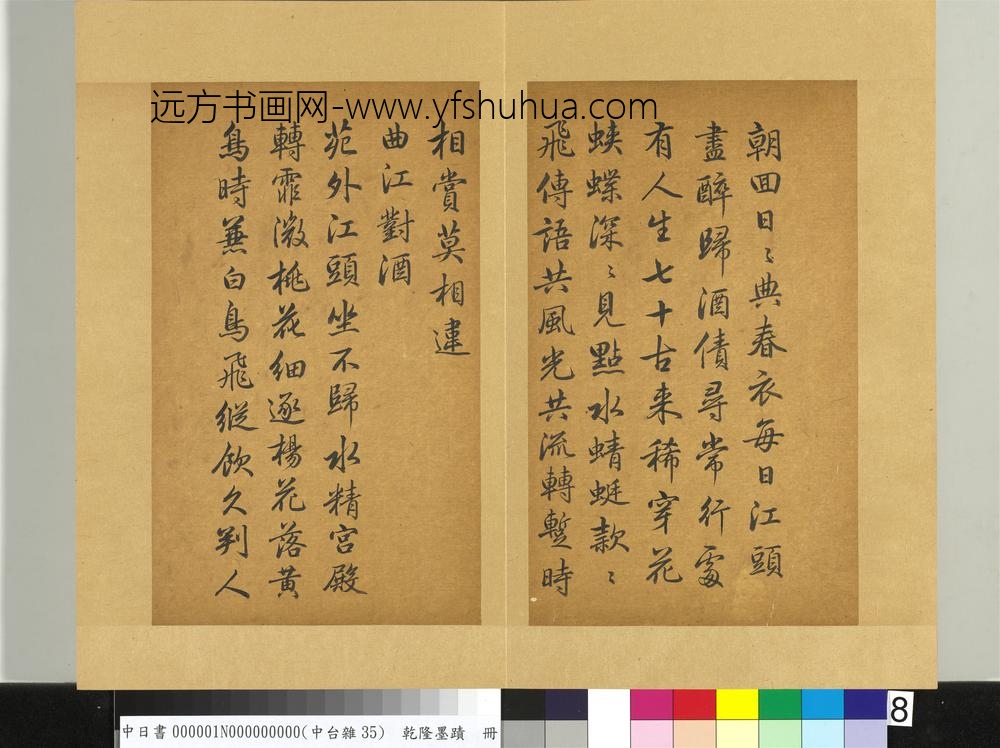 远方书画网-www.yfshuhua.com
朝回日〻典春衣每日江頭
盡醉歸酒債尋常行處
有人生七十古来稀穿花
蛺蝶深〻見點水蜻蜓款〻
飛傳語共風光共流轉暫時
相賞莫相違
曲江對酒
苑外江頭坐不歸水精宮殿
轉霏微桃花細逐楊花落黃
鳥時兼白鳥飛縱飲久判人
中日書 000001N000000000(中台雜 35) 乾隆墨蹟 冊
8